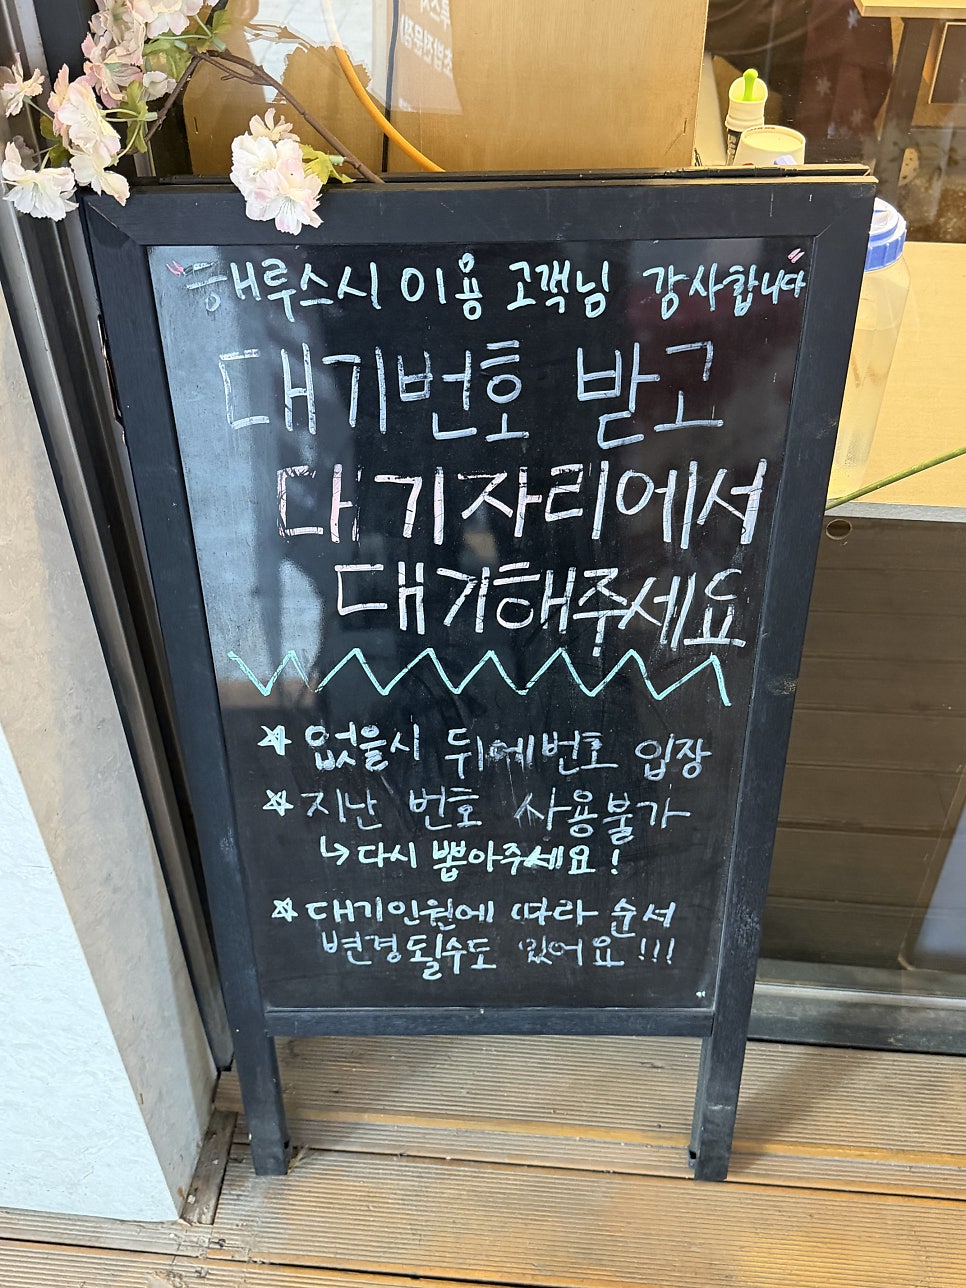 "해루스시 이용 고객님 감사합니다"
대기번호 받고
대기자리에서
대기해주세요
☆ 없을시 뒤에번호 입장
☆ 지난 번호 사용불가
↳ 다시 뽑아주세요!
☆ 대기인원에 따라 순서
변경될수도 있어요!!!